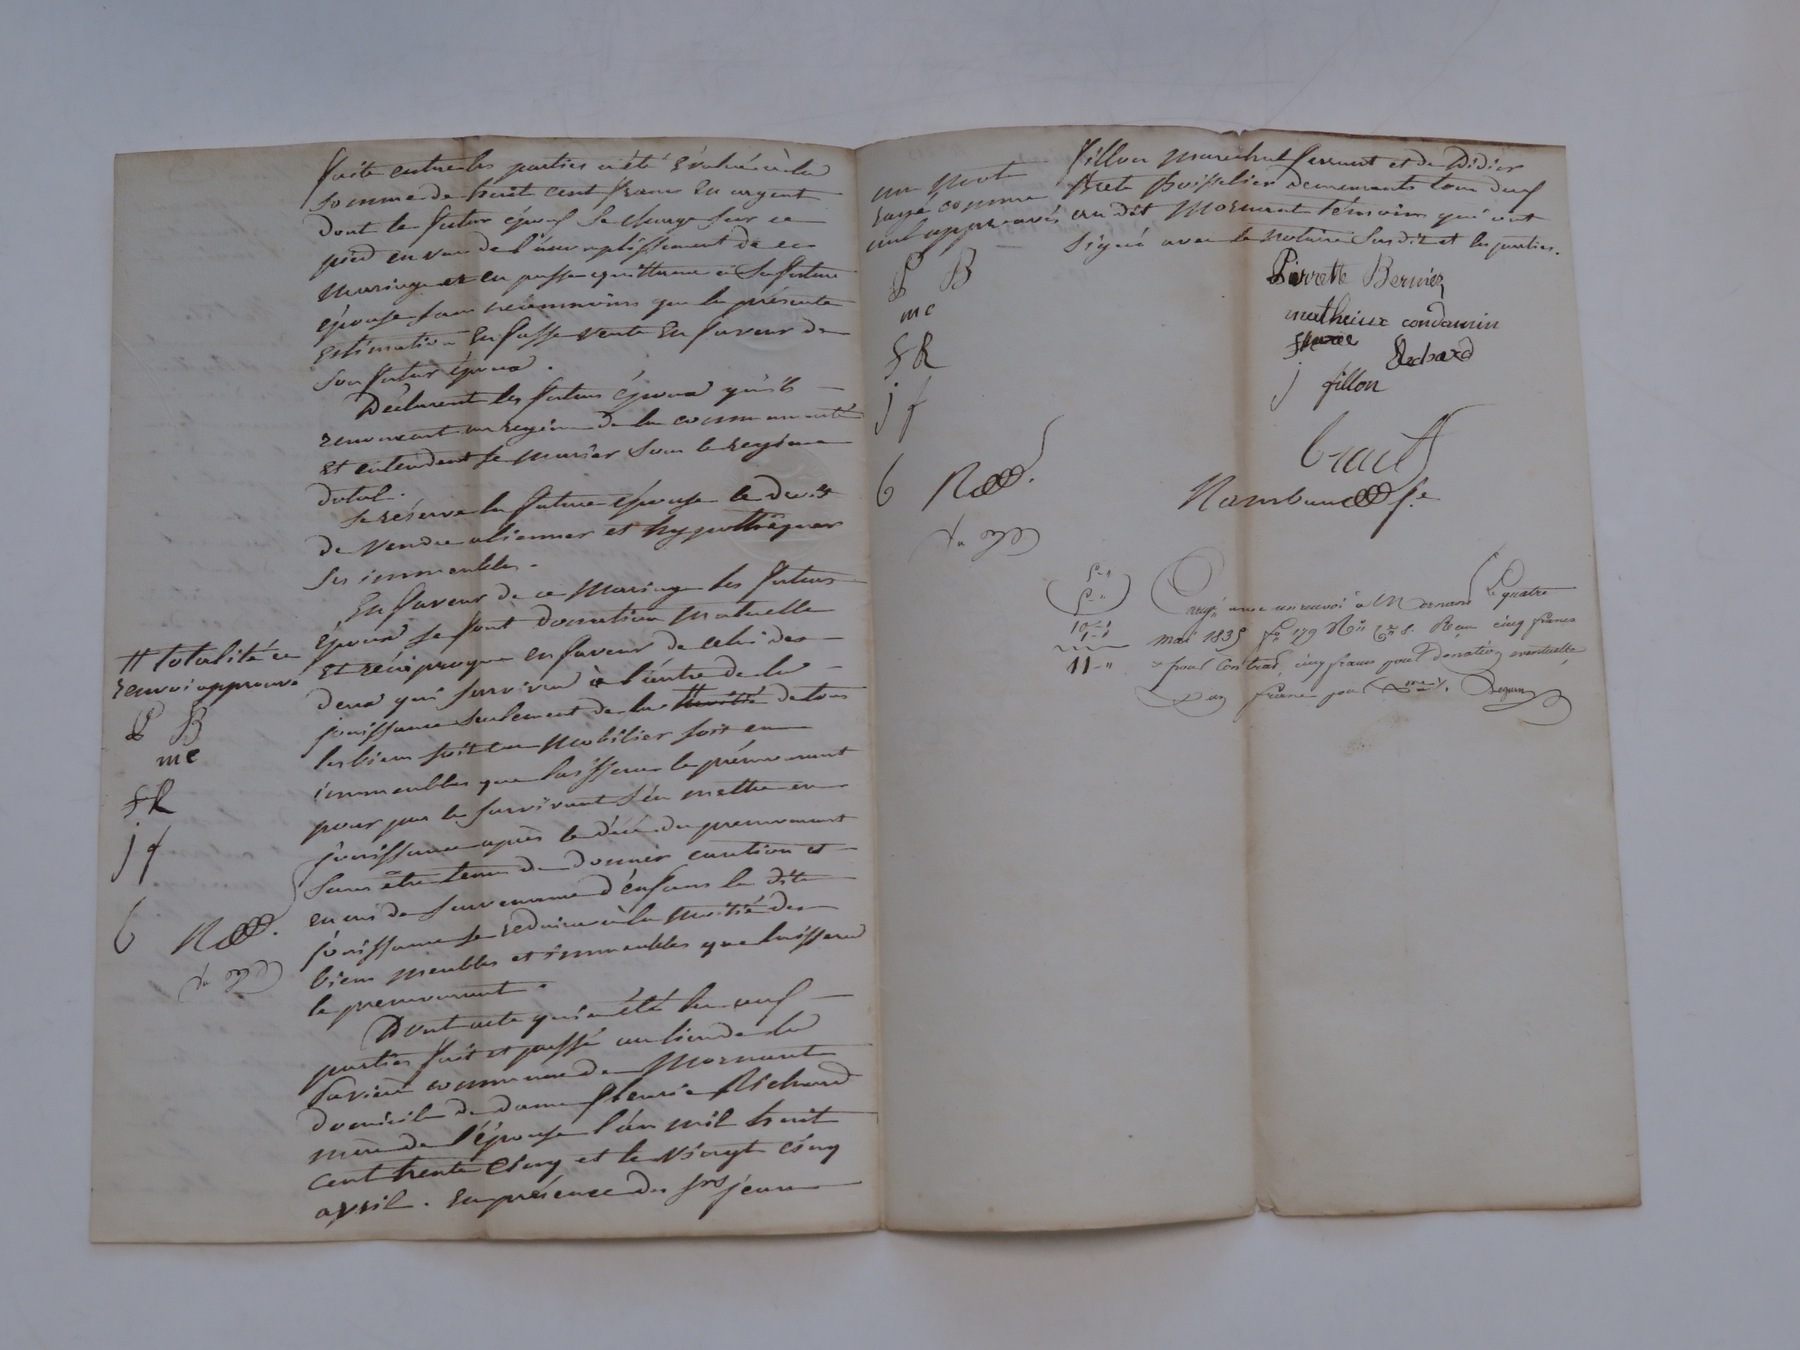 faite entre les parties a été évaluée à la
somme de huit cent francs en argent
dont le futur époux se charge sur ce
pied en vue de l'accomplissement de ce
mariage et en passe quittance à sa future
épouse sans néanmoins que la présente
estimation en fasse vente en faveur du
son futur époux.
Déclarent les futurs époux qu'ils
renoncent au régime de la communauté
et entendent se marier sous le régime
dotal.
Se réserve la future épouse le droit
de vendre aliener et hypothéquer
ses immeubles.
En faveur de ce mariage les futurs
époux se font donation mutuelle
et réciproque en faveur de celui des
deux qui survivra à l'autre de la
jouissance seulement de la # moitié de tous
les biens soit en mobilier soit en
immeubles que laissera le prémourant
pour par le survivant s'en mettre en
jouissance après le décès du premourant
sans être tenu de donner caution et
en cas de survenance d'enfans la dite
jouissance se reduira à la moitié des
biens meubles et immeubles que laissera
le premourant.
Dont acte qui a été lu aux
parties fait et passé au lieu de la
commune de Mornant
domicile de dame fleurie Richard
mère de l'épouse l'an mil huit
cent trente cinq et le vingt cinq
avril. En présence des srs jean
# totalité ce
renvoi approuvé
P B
mc
f R
j f
6
fillon marechal ferrant et de Didier
Brets Boisselier demeurants tous deux
au dit Mornant témoins qui ont
signé avec le notaire susdit et les parties.
un mot
rayé comme
nul approuvé
P B
mc
f R
j f
6
Pierrette Bernier
matheiux condamin
fleurie Richard
j fillon
5 "
5 "
10 "
1 "
11 "
Enregé avec un renvoi à Mornant le quatre
mai 1835 fo 179 Ro Cses 8. Reçu cinq francs
pour contrat, cinq francs pour donation eventuelle
un franc pour